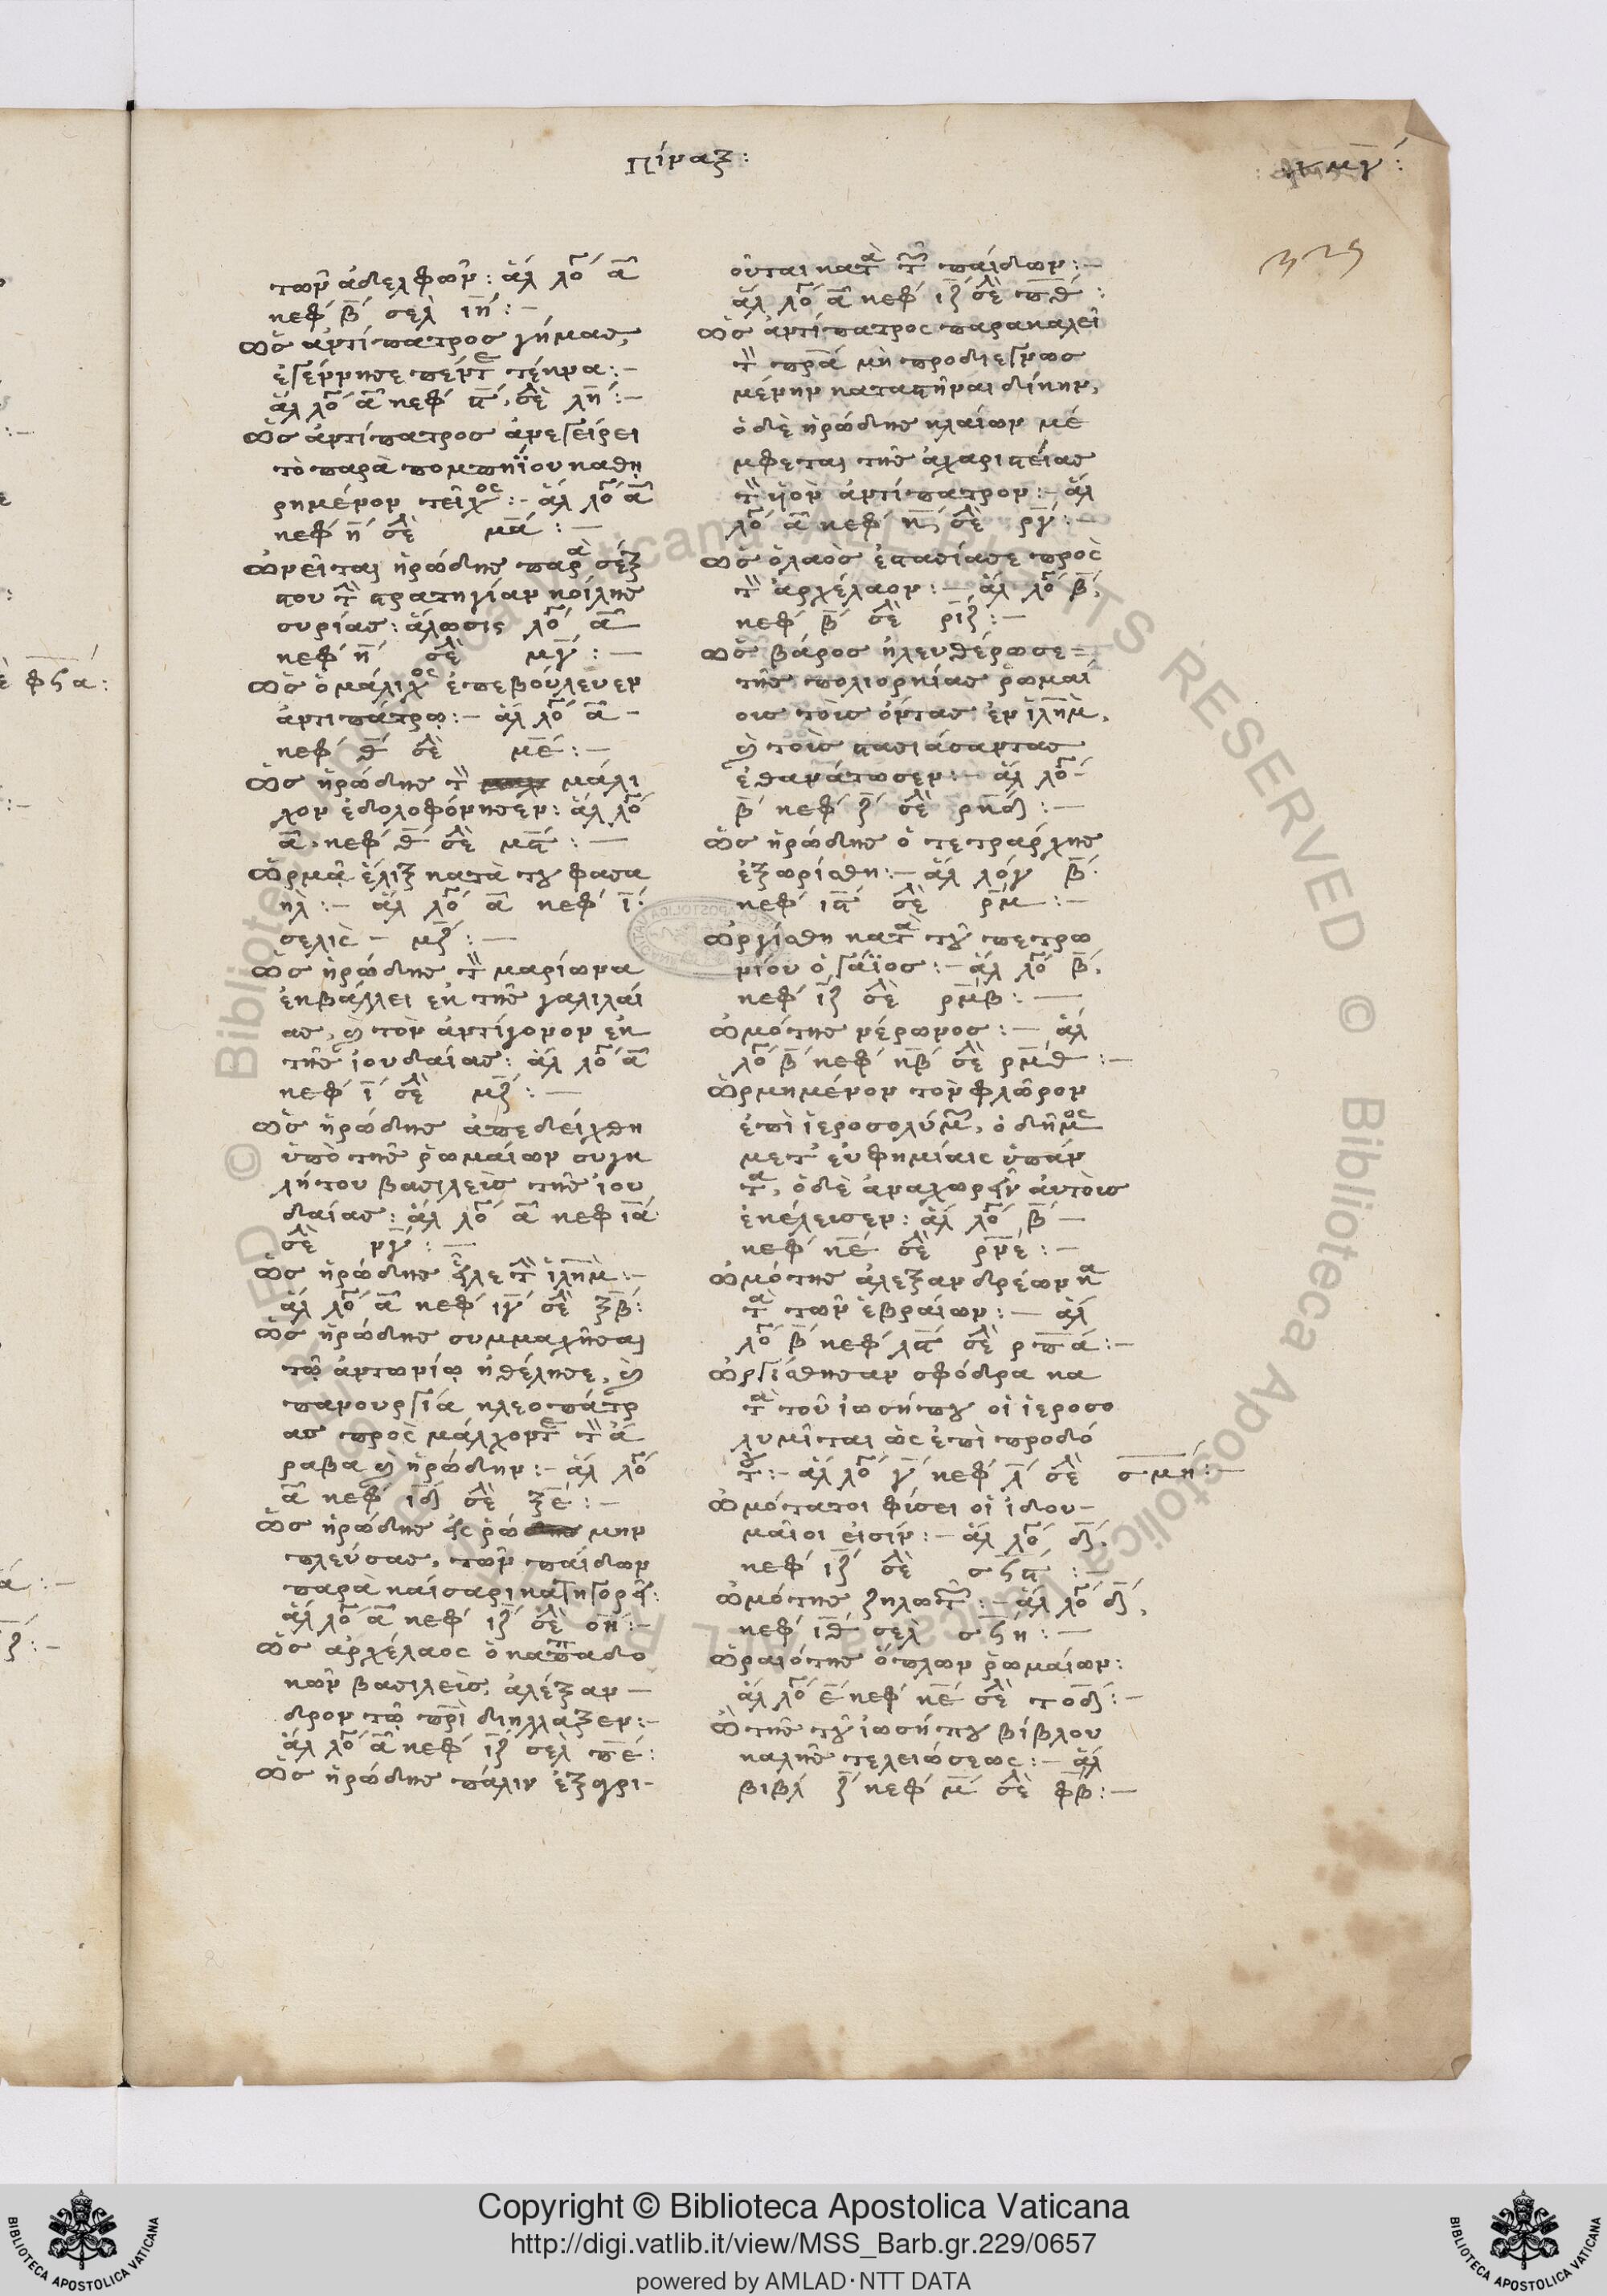 Πίναξ:
κμγʹ:
329
τῶν ἀδελφῶν: ἁλ λο α
κεφ β σελ ιη:—
ὡς ἀντίπατρος γήμας,
ἐγέννησε πέντε τέκνα:—
ἁλ λο α κεφ ϛ, σε λη:—
ὡς ἀντίπατρος ἀνεγείρει
τὸ παρὰ πομπηΐου καθῃ
ρημένον τεῖχος:— ἁλ λο α
κεφ η σε μα:—
ὠνεῖται ἡρώδης παρὰ σέξ
του τὴν στρατηγίαν κοίλης
συρίας: ἅλωσις λο α
κεφ η σε μγ:—
ὡς ὁ μάλιχος ἐπεβούλευεν
ἀντιπάτρῳ:— ἁλ λο α —
κεφ θ σε με:—
ὡς ἡρώδης τὸν μάλι
χον ἐδολοφόνησεν: ἁλ λο
α, κεφ θ σε μϛ:—
ὥρμα ἕλιξ κατὰ του φασα
ηλ:— ἁλ λο α κεφ ι:
σελὶς — μζ:—
ὡς ἡρώδης τὸν μαρίωνα
ἐκβάλλει ἐκ τῆς γαλιλαί
ας, καὶ τὸν ἀντίγονον ἐκ
τῆς ἰουδαίας: ἁλ λο α
κεφ ι σε μζ:—
ὡς ἡρώδης ἀπεδείχθη
ὑπὸ τῆς ῥωμαίων συγκ
λήτου βασιλεὺς τῆς ἰου
δαίας: ἁλ λο α κεφ ια
σε νγ:—
ὡς ἡρώδης εἷλε τὴν ἱλημ:—
ἁλ λο α κεφ ιγ σε ξβ:
ὡς ἡρώδης συμμαχῆσαι
τῷ ἀντωνίῳ ἠθέλησε, καὶ
πανουργία κλεοπάτρ
ας πρὸς μάλχοντε τὸν ἄ
ραβα καὶ ἡρώδην:— ἁλ λο
α κεφ ιδ σε ξε:—
ὡς ἡρώδης εἰς ῥώ μην
πλεύσας, τῶν παίδων
παρὰ καίσαρι κατηγορεῖ:
ἁλ λο α κεφ ιζ σε οη:—
ὡς ἀρχέλαος ὁ καππαδο
κῶν βασιλεὺς, ἀλέξαν—
δρον τῷ πρι διηλλαξεν:—
ἁλ λο α κεφ ιζ σελ πε:
ὡς ἡρώδης πάλιν ἐξαγρι—
οῦται κατὰ τῶν παίδων:—
ἁλ λο α κεφ ιζ σε πθ:
ὡς ἀντίπατρος παρακαλεῖ
τὸν πρα μὴ προδιεγνωσ
μένην καταστῆναι δίκην,
ὁ δὲ ἡρώδης κλαίων μέ
μφεται τῆς ἀχαριστείας
τὸν υἱὸν ἀντίπατρον:— ἁλ
λο α κεφ κ, σε ργ:—
ὡς ὁ λαὸς ἐστασίασε πρὸς
τὸν ἀρχέλαον:— ἁλ λο β,
κεφ β σε ριζ:—
ὡς βάρος ἠλευθέρωσε—
τῆς πολιορκίας ῥωμαί
ους τοὺς ὄντας ἐν ἱλημ,
καὶ τοὺς στασιάσαντας
ἐθανάτωσεν:— ἁλ λο—
β κεφ ζ σε ρκδ:—
ὡς ἡρώδης ὁ τετράρχης
ἐξωρίσθη:— ἁλ λόγ β.
κεφ ιϛ σε ρμ:—
ὠργίσθη κατὰ του πετρω
νίου ὁ γάϊος:— ἁλ λο β,
κεφ ιζ σε ρμβ:—
ὠμότης νέρωνος:— ἁλ
λο β κεφ κβ σε ρμθ:—
ὡρμημένον τὸν φλῶρον
ἐπὶ ἱεροσολύμων, ὁ δῆμος
μετ᾽ εὐφημίαις ὑπάν
τα, ὁ δὲ ἀναχωρεῖν αὐτοὺς
ἐκέλευσεν: ἁλ λο β —
κεφ κε σε ρνε:—
ὠμότης ἀλεξανδρέων κα
τὰ τῶν ἑβραίων:— ἁλ
λο β κεφ λϛ σε ρπα:—
ὠργίσθησαν σφόδρα κα
τὰ τοῦ ἰωσήπου οἱ ἱεροσο
λυμῖται ὡς ἐπὶ προδό
του:— ἁλ λο γ κεφ λ σε σμη:—
ὠμότατοι φύσει οἱ ἰδου—
μαῖοι εἰσίν:— ἁλ λο δ,
κεφ ιζ σε σϟϛ:—
ὠμότης ζηλωτῶν:— ἁλ λο δ,
κεφ ιθ σελ σϟη:—
ὡραιότης ὅπλων ῥωμαίων:
ἁλ λο ε κεφ κε σε τοδ:—
Ὢ τῆς του ἰωσήπου βίβλου
καλῆς τελειώσεως:— ἁλ
βιβλ ζ κεφ μ σε φβ:—
Copyright © Biblioteca Apostolica Vaticana
http://digi.vatlib.it/view/MSS_Barb.gr.229/0657
powered by AMLAD·NTT DATA
BIBLIOTECA APOSTOLICA VATICANA
BIBLIOTECA APOSTOLICA VATICANA